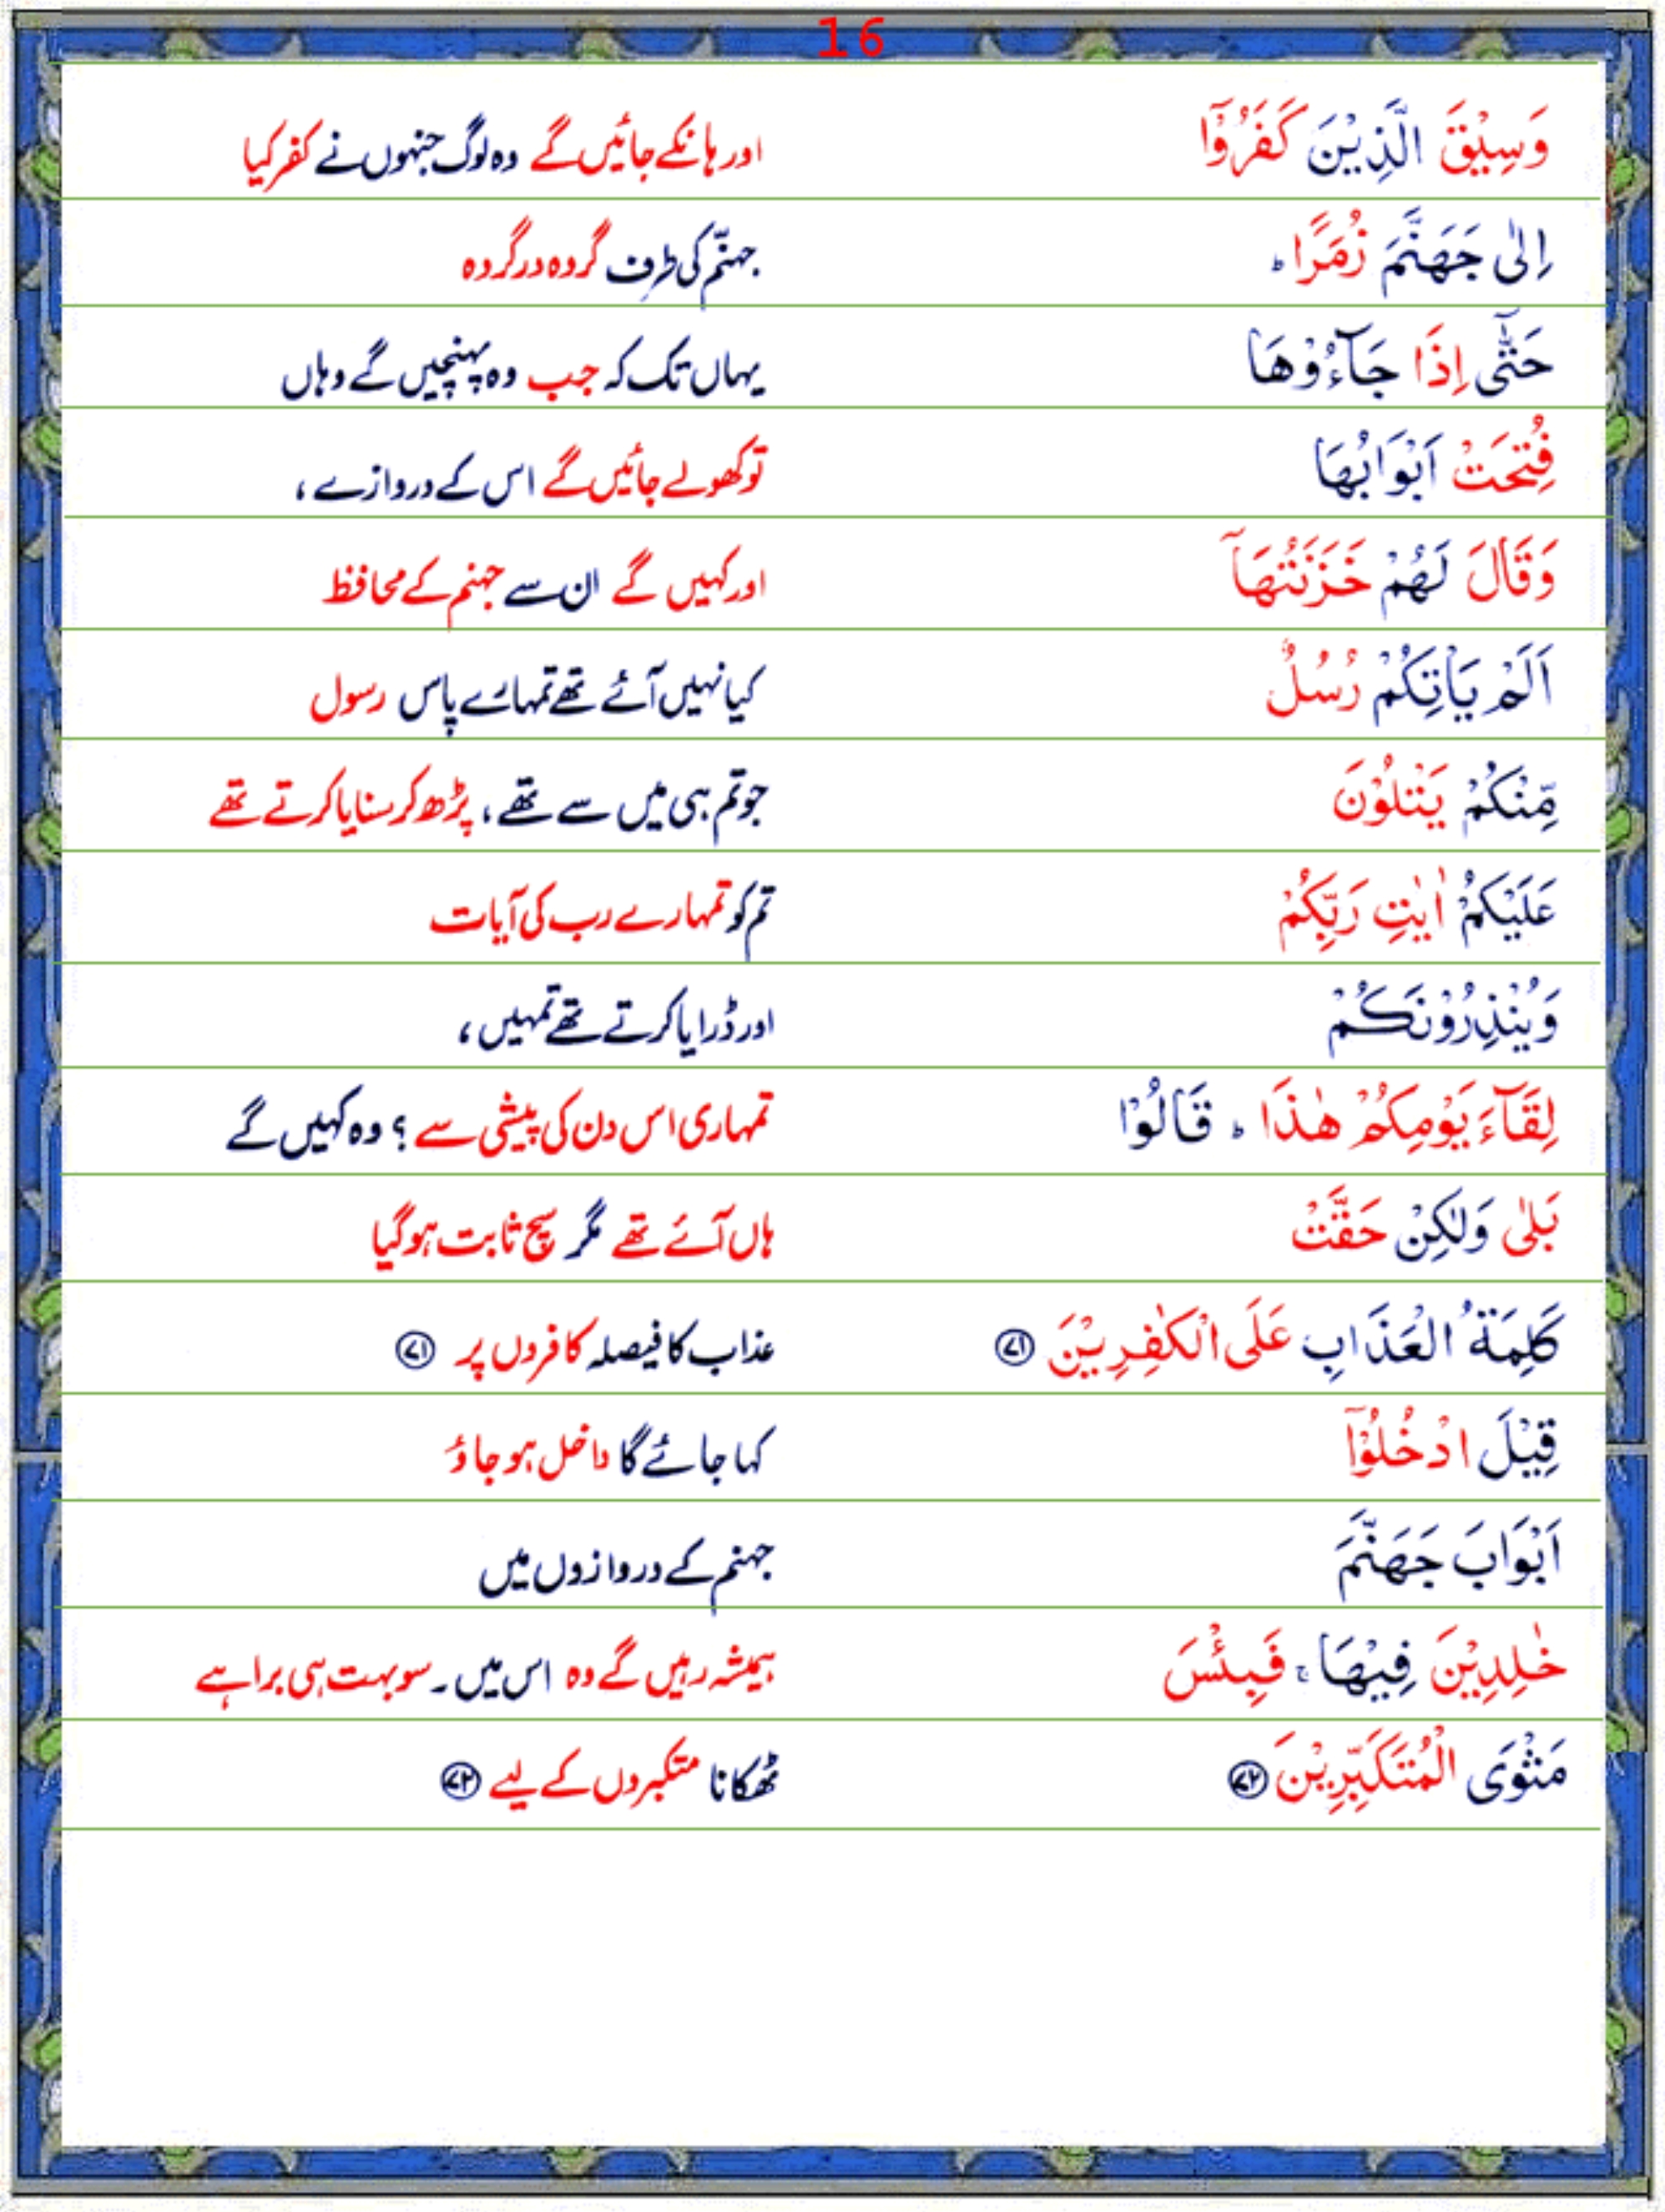 16
وَسِيْقَ الَّذِيْنَ كَفَرُوْٓا اور ہانکے جائیں گے وہ لوگ جنہوں نے کفر کیا
اِلٰى جَهَنَّمَ زُمَرًا ؕ جہنّم کی طرف گروہ در گروہ
حَتّٰٓى اِذَا جَآءُوْهَا یہاں تک کہ جب وہ پہنچیں گے وہاں
فُتِحَتْ اَبْوَابُهَا تو کھولے جائیں گے اس کے دروازے ،
وَقَالَ لَهُمْ خَزَنَتُهَآ اور کہیں گے ان سے جہنم کے محافظ
اَلَمْ يَاْتِكُمْ رُسُلٌ کیا نہیں آئے تھے تمہارے پاس رسول
مِّنْكُمْ يَتْلُوْنَ جو تم ہی میں سے تھے ، پڑھ کر سنایا کرتے تھے
عَلَيْكُمْ اٰيٰتِ رَبِّكُمْ تم کو تمہارے رب کی آیات
وَيُنْذِرُوْنَكُمْ اور ڈرایا کرتے تھے تمہیں ،
لِقَآءَ يَوْمِكُمْ هٰذَا ؕ قَالُوْا تمہاری اس دن کی پیشی سے ؟ وہ کہیں گے
بَلٰى وَلٰكِنْ حَقَّتْ ہاں آئے تھے مگر سچ ثابت ہوگیا
كَلِمَةُ الْعَذَابِ عَلَى الْكٰفِرِيْنَ ۷۱ عذاب کا فیصلہ کافروں پر ۷۱
قِيْلَ ادْخُلُوْٓا کہا جائے گا داخل ہو جاؤ
اَبْوَابَ جَهَنَّمَ جہنم کے دروازوں میں
خٰلِدِيْنَ فِيْهَا ۚ فَبِئْسَ ہمیشہ رہیں گے وہ اس میں ۔ سو بہت ہی برا ہے
مَثْوَى الْمُتَكَبِّرِيْنَ ۷۲ ٹھکانا متکبروں کے لیے ۷۲